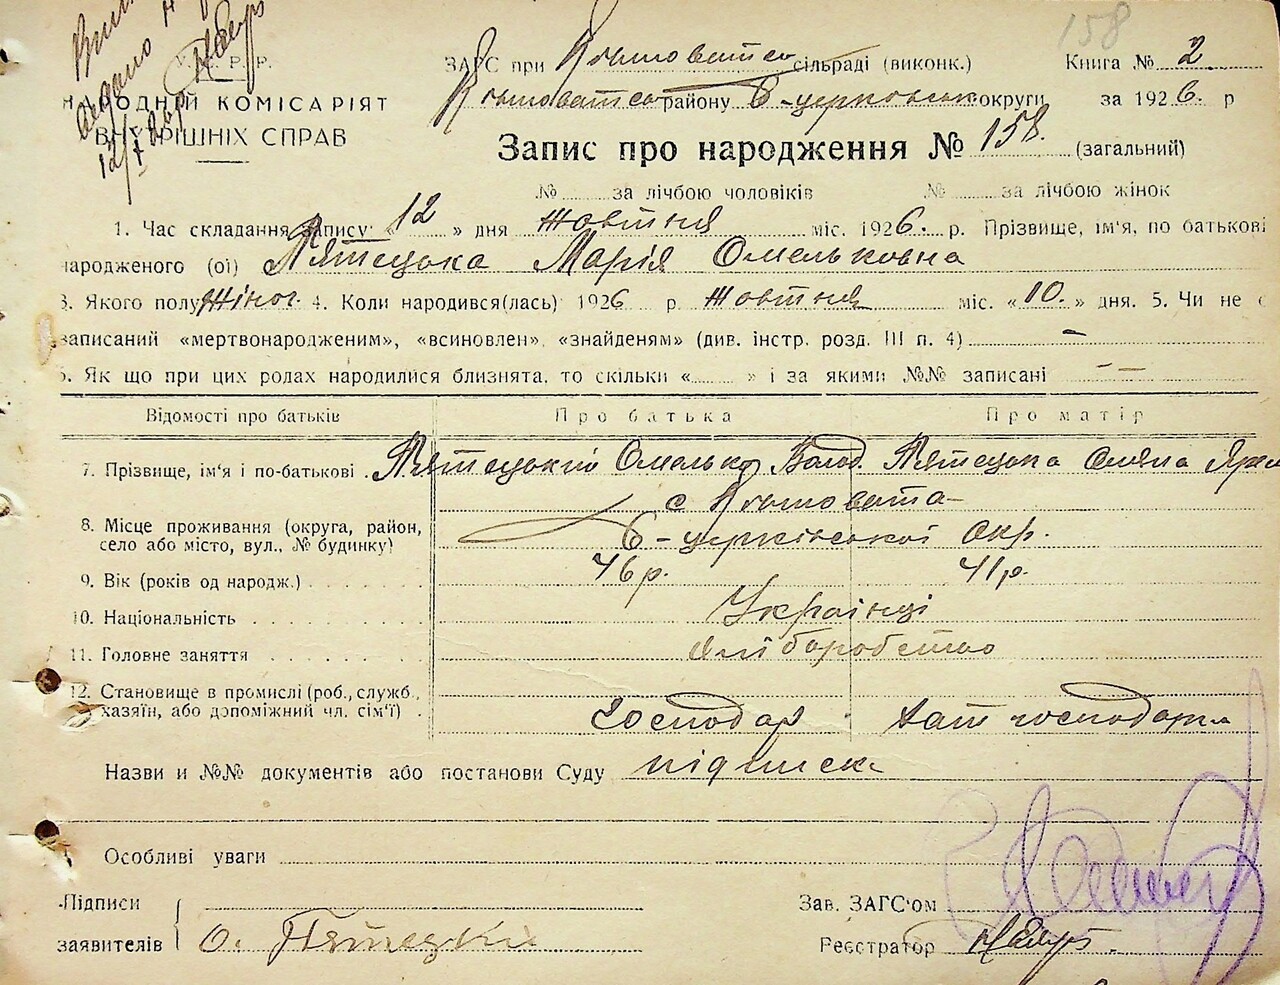 158
У. С. Р. Р.
НАРОДНІЙ КОМІСАРІЯТ
ВНУТРІШНІХ СПРАВ
ЗАГС при сільраді (виконк.) Книга № 2
району Б-церковськ округи за 1926 р
Запис про народження № 158. (загальний)
№ за лічбою чоловіків № за лічбою жінок
1. Час складання запису: 12 » дня жовтня міс. 1926. р. Прізвище, ім'я, по батькові
народженого (ої) Пятецька Марія Омельковна
3. Якого полу жіноч. 4. Коли народився(лась) 1926 р жовтня міс. «10.» дня. 5. Чи не є
записаний «мертвонародженим», «всиновлен», «знайденям» (див. інстр. розд. III п. 4) —
6. Як що при цих родах народилися близнята, то скільки « » і за якими №№ записані — —
Відомості про батьків Про батька Про матір
7. Прізвище, ім'я і по-батькові Пятецький Омелько Волод. Пятецька Олена
8. Місце проживання (округа, район, с
село або місто, вул., № будинку) Б-церківської окр.
9. Вік (років од народж.) 46 р. 41 р.
10. Національність Українці
11. Головне заняття хліборобство
12. Становище в промислі (роб., служб.,
хазяїн, або допоміжний чл. сім'ї) господар господарка
Назви и №№ документів або постанови Суду підписка
Особливі уваги
Підписи Зав. ЗАГС'ом
заявителів О. Пятецкий Реєстратор